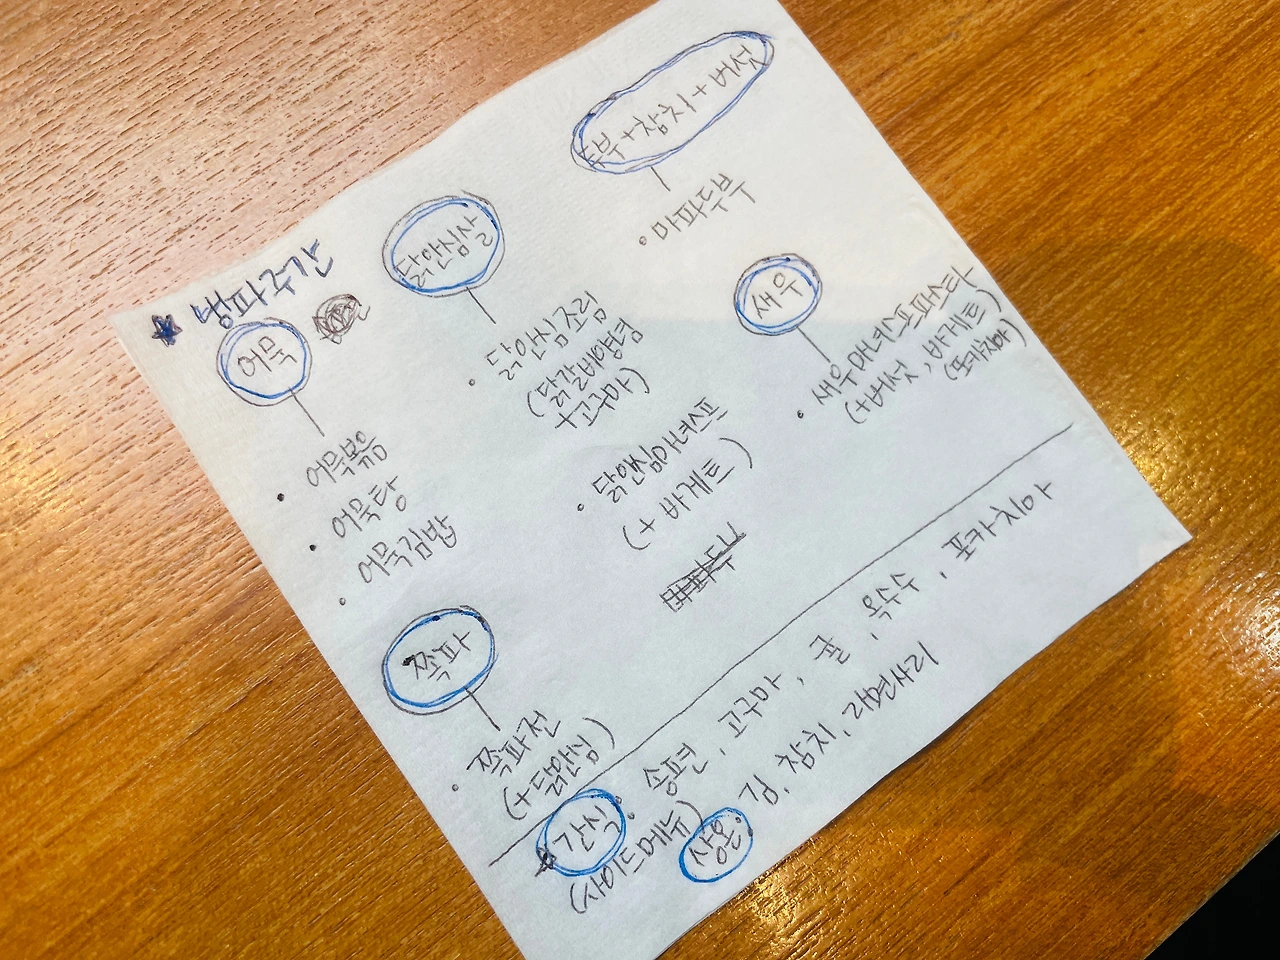 ★ 냉파주간
어묵
• 어묵볶음
• 어묵탕
• 어묵김밥
닭안심살
• 닭안심조림
(닭갈비양념
+고구마)
• 닭안심마녀스프
(+ 바게트)
두부+참치+버섯
• 마파두부
새우
• 새우마녀스프파스타
(+버섯, 바게트)
(포카치아)
쪽파
• 쪽파전
(+닭안심)
★간식: 송편, 고구마, 귤, 옥수수, 포카치아
(사이드메뉴)
상온: 김, 참치, 라면사리